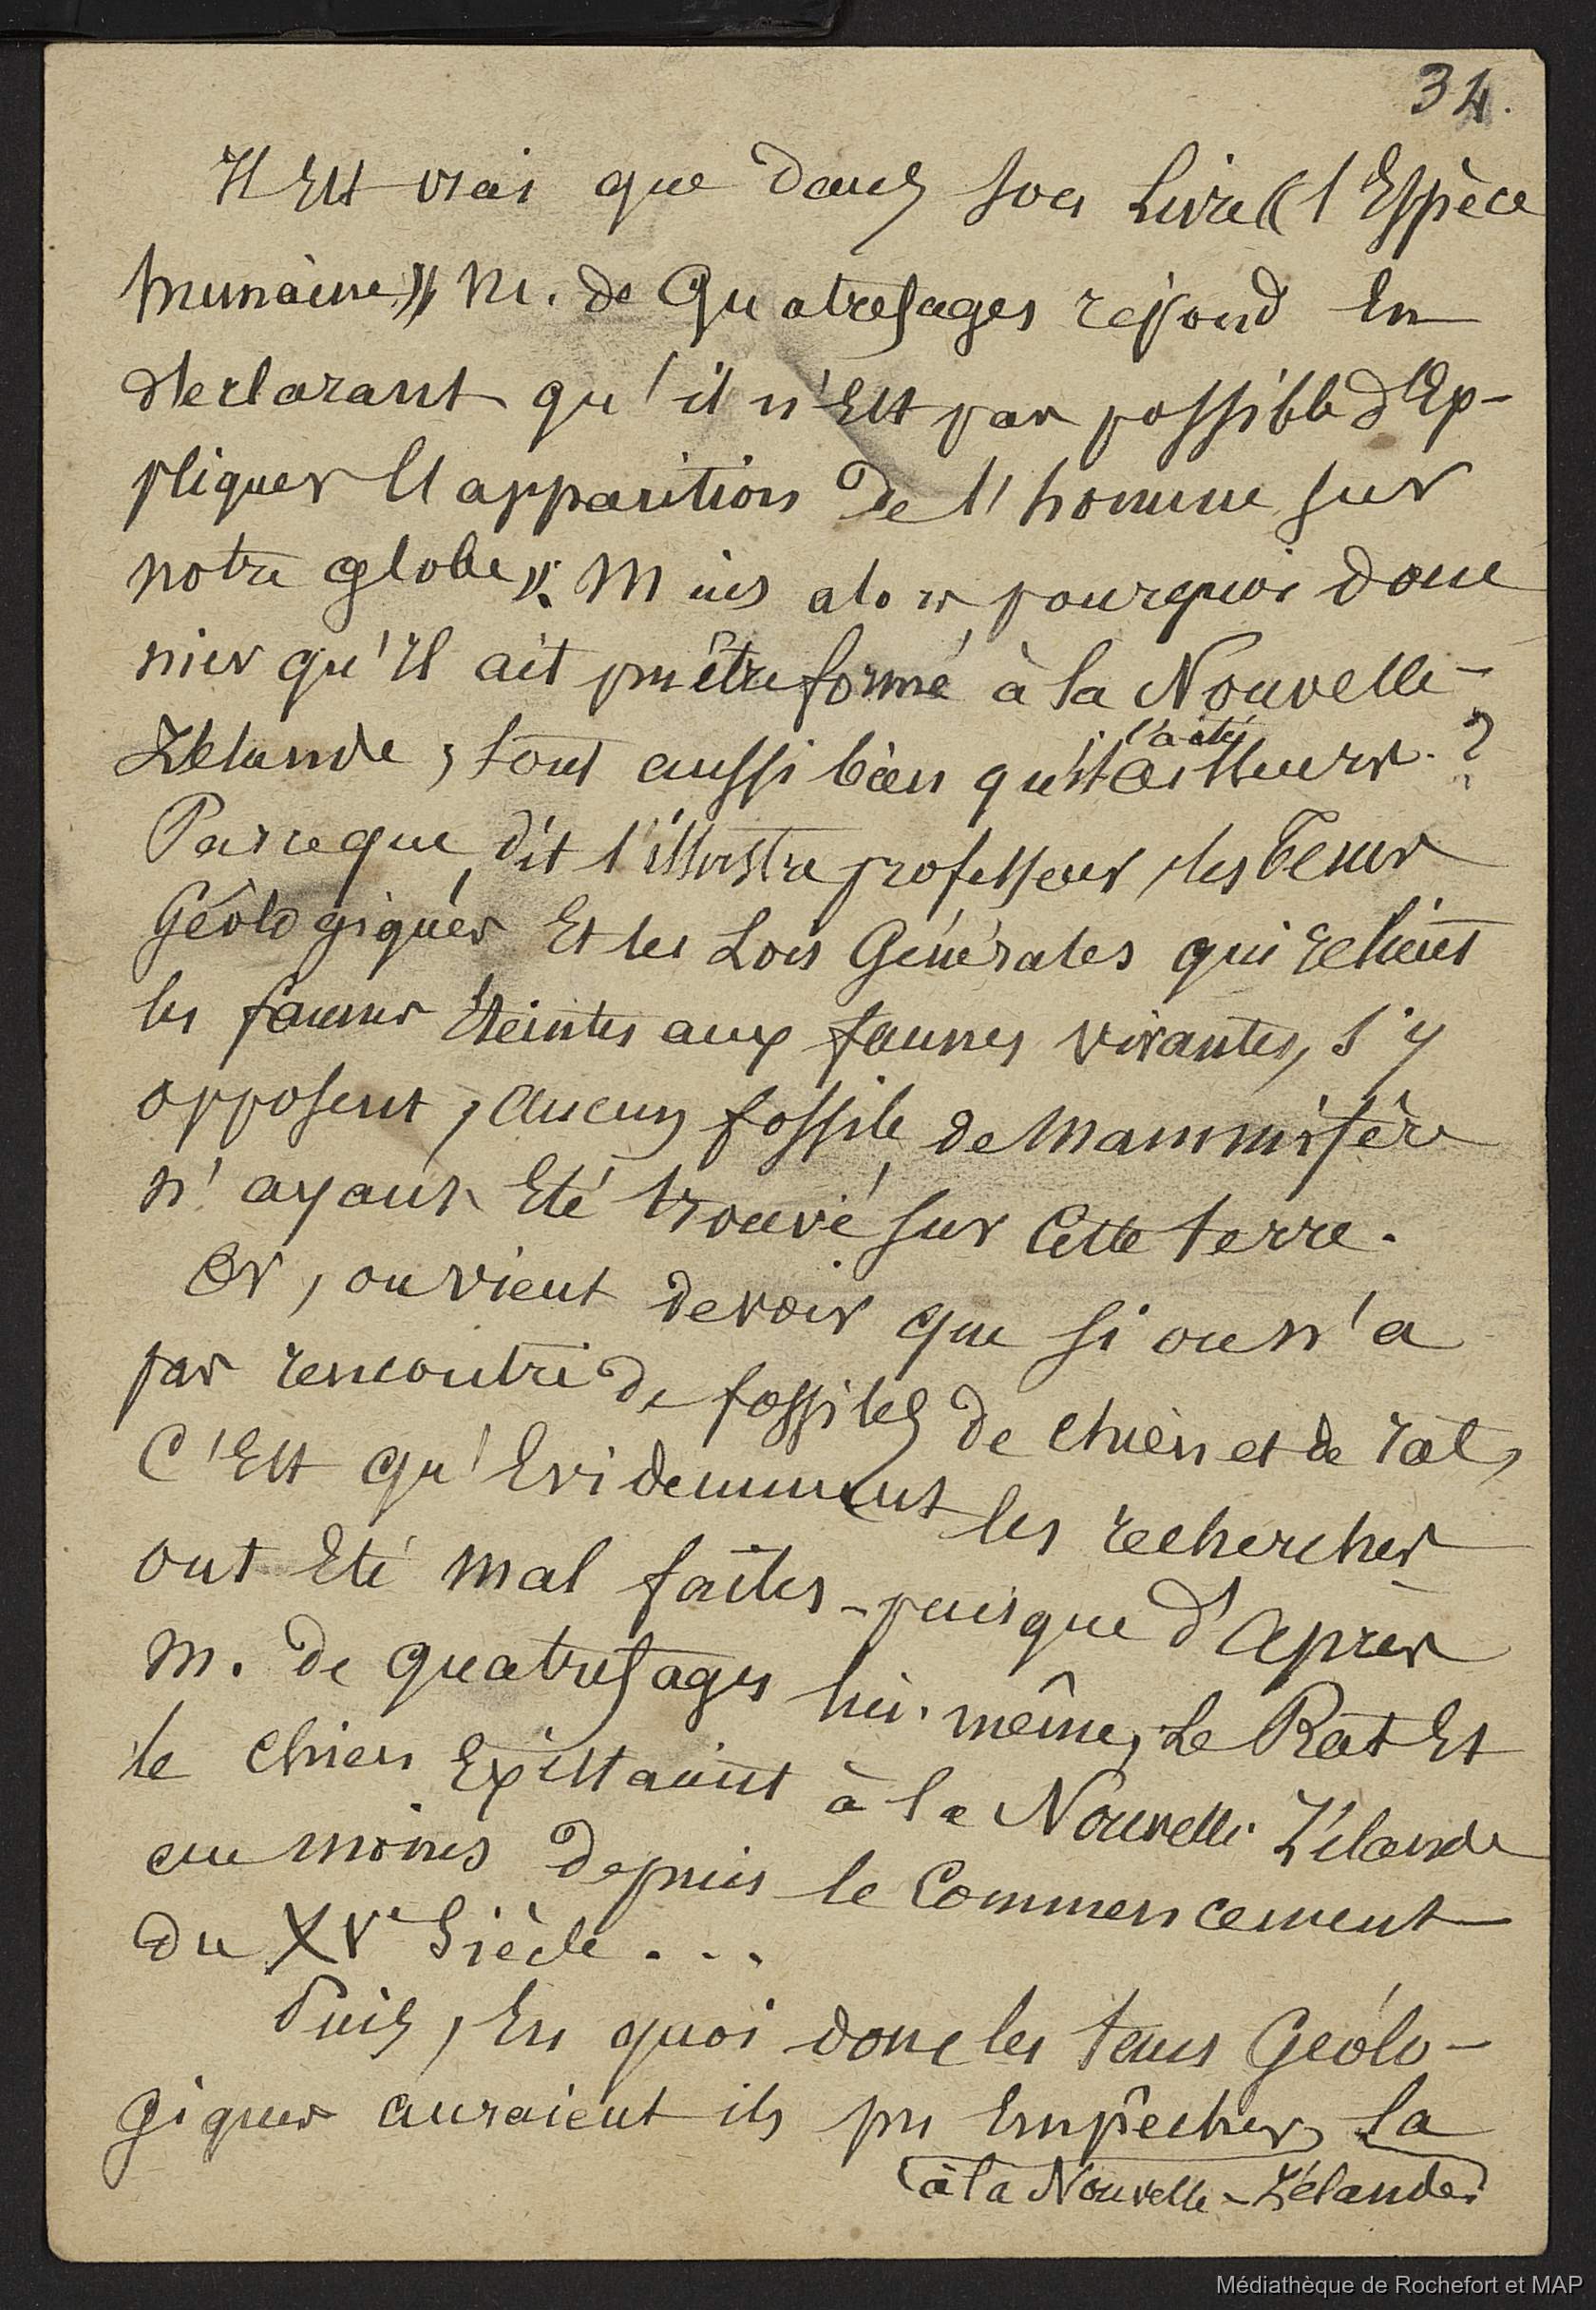 34.
Il Est vrai que dans son Livre (l'Espèce
humaine)), M. de Quatrefages répond En
déclarant qu'il n'Est pas possible d'Ex-
pliquer l'apparition de l'homme sur
notre globe». Mais alors pourquoi donc
nier qu'Il ait pu être formé à la Nouvelle-
Zélande, tout aussi bien qu'il l'a été ailleurs. ?
Parce que, dit l'illustre professeur, les Tems
Géologiques Et les Lois Générales qui relient
les faunes Eteintes aux faunes vivantes, s'y
opposent, aucun fossile de Mammifère
n'ayant Eté trouvé sur Cette terre.
Or, on vient de voir que si on n'a
pas rencontré de fossiles de chien et de rat,
C'Est qu'Evidemment les recherches
ont Eté mal faites - puisque d'Après
M. de Quatrefages lui-même, Le Rat Et
le Chien Existaient à la Nouvelle Zélande
au moins depuis le Commencement
du XVe Siècle . . .
Puis, En quoi donc les tems Géolo-
giques auraient ils pu Empêcher, la
(à la Nouvelle-Zélande)
Médiathèque de Rochefort et MAP